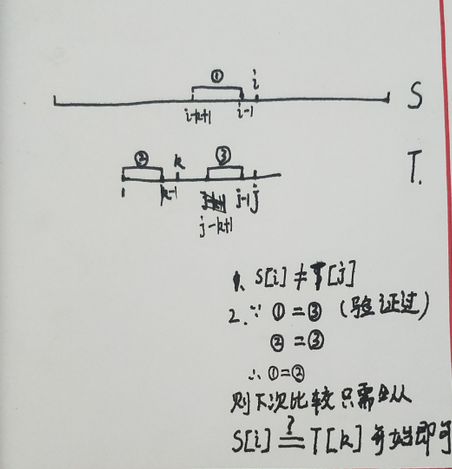 ① i
S
i-k+1 i-1
② k ③
T.
1 k-1 j-1 j
j-k+1
1. S[i]≠T[j]
2. ∵ ①=③ (验证过)
②=③
∴ ①=②
则下次比较只需从
S[i] ≟ T[k] 开始即可